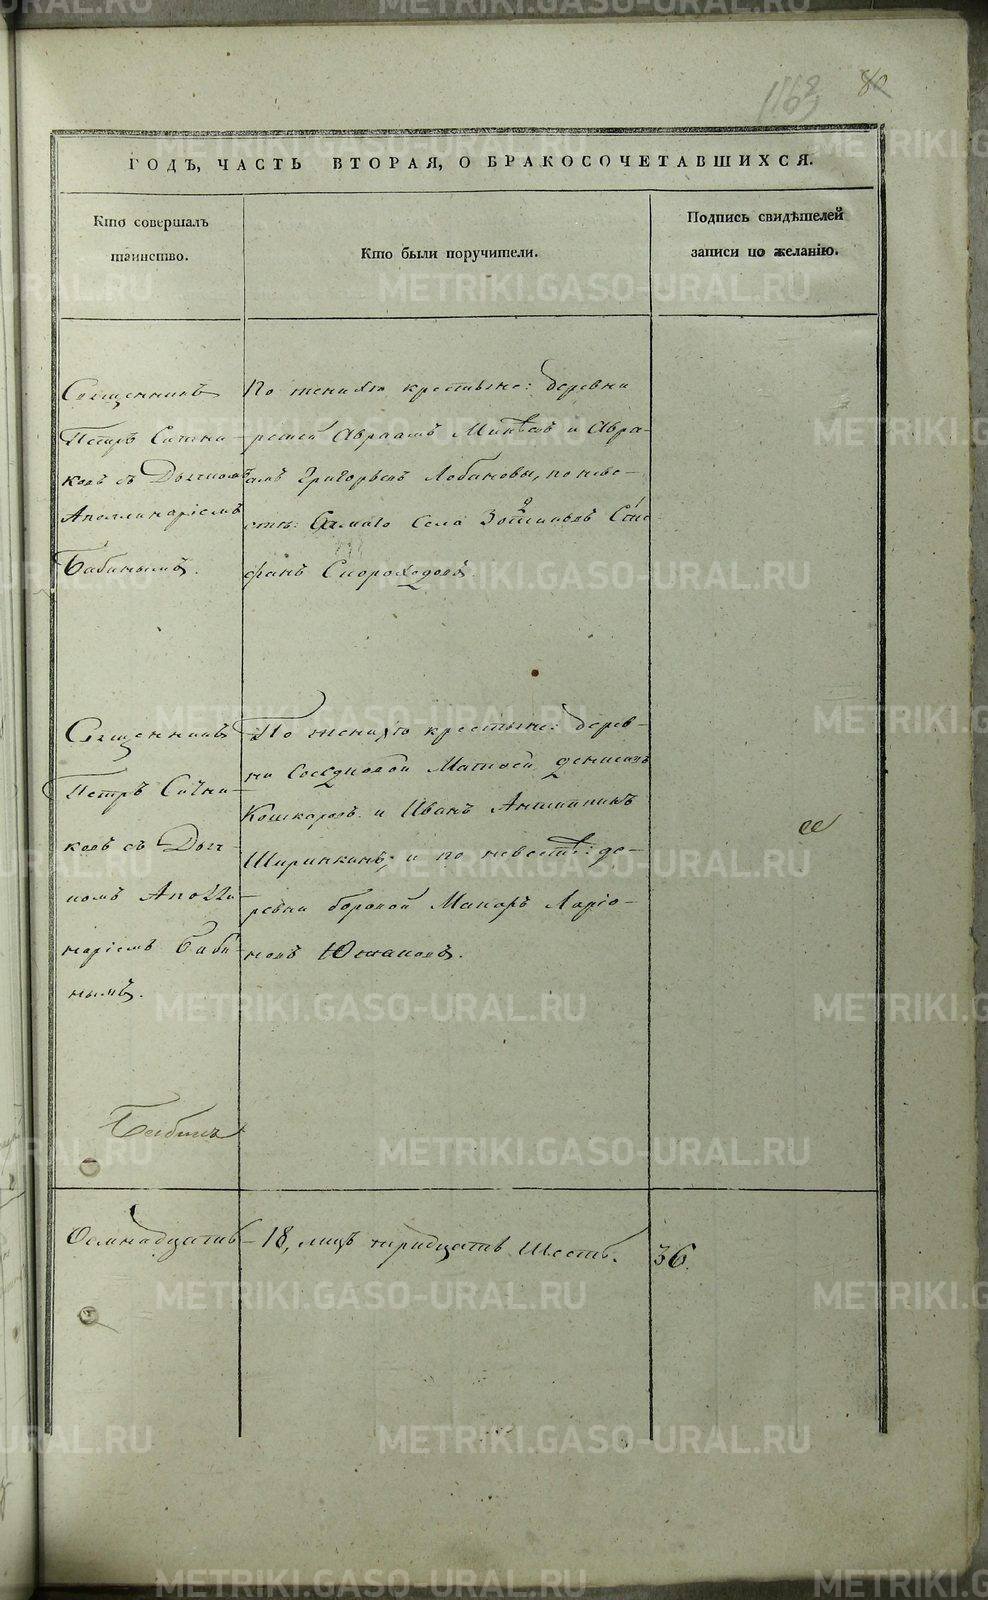 80
ГОДЪ, ЧАСТЬ ВТОРАЯ, О БРАКОСОЧЕТАВШИХСЯ.
Кто совершалъ
таинство.
Кто были поручители.
Подпись свидѣтелей
записи по желанію.
Священникъ
Петръ Сични-
ковъ съ Дьячкомъ
Аполлинаріемъ
Бабинымъ.
По женихѣ крестьяне: деревни
Авраамъ Минѣевъ и Авра-
амъ Григорьевъ Лобановы, по невѣ-
стѣ: Самаго Села Зотиковъ Сте-
фанъ Скороходовъ.
Священникъ
Петръ Сични-
ковъ съ Дьяч-
комъ Аполли-
наріемъ Баби-
нымъ.
По женихѣ крестьяне: дерев-
ни Сосѣдковой Матвей Денисовъ
Кошкаровъ и Иванъ
Ширинкинъ; и по невѣстѣ: де-
ревни боровой Макаръ Ларіо-
новъ Южаковъ.
Бабинъ
Осмнадцать - 18, лицъ тридцать Шесть. 36.
METRIKI.GASO-URAL.RU